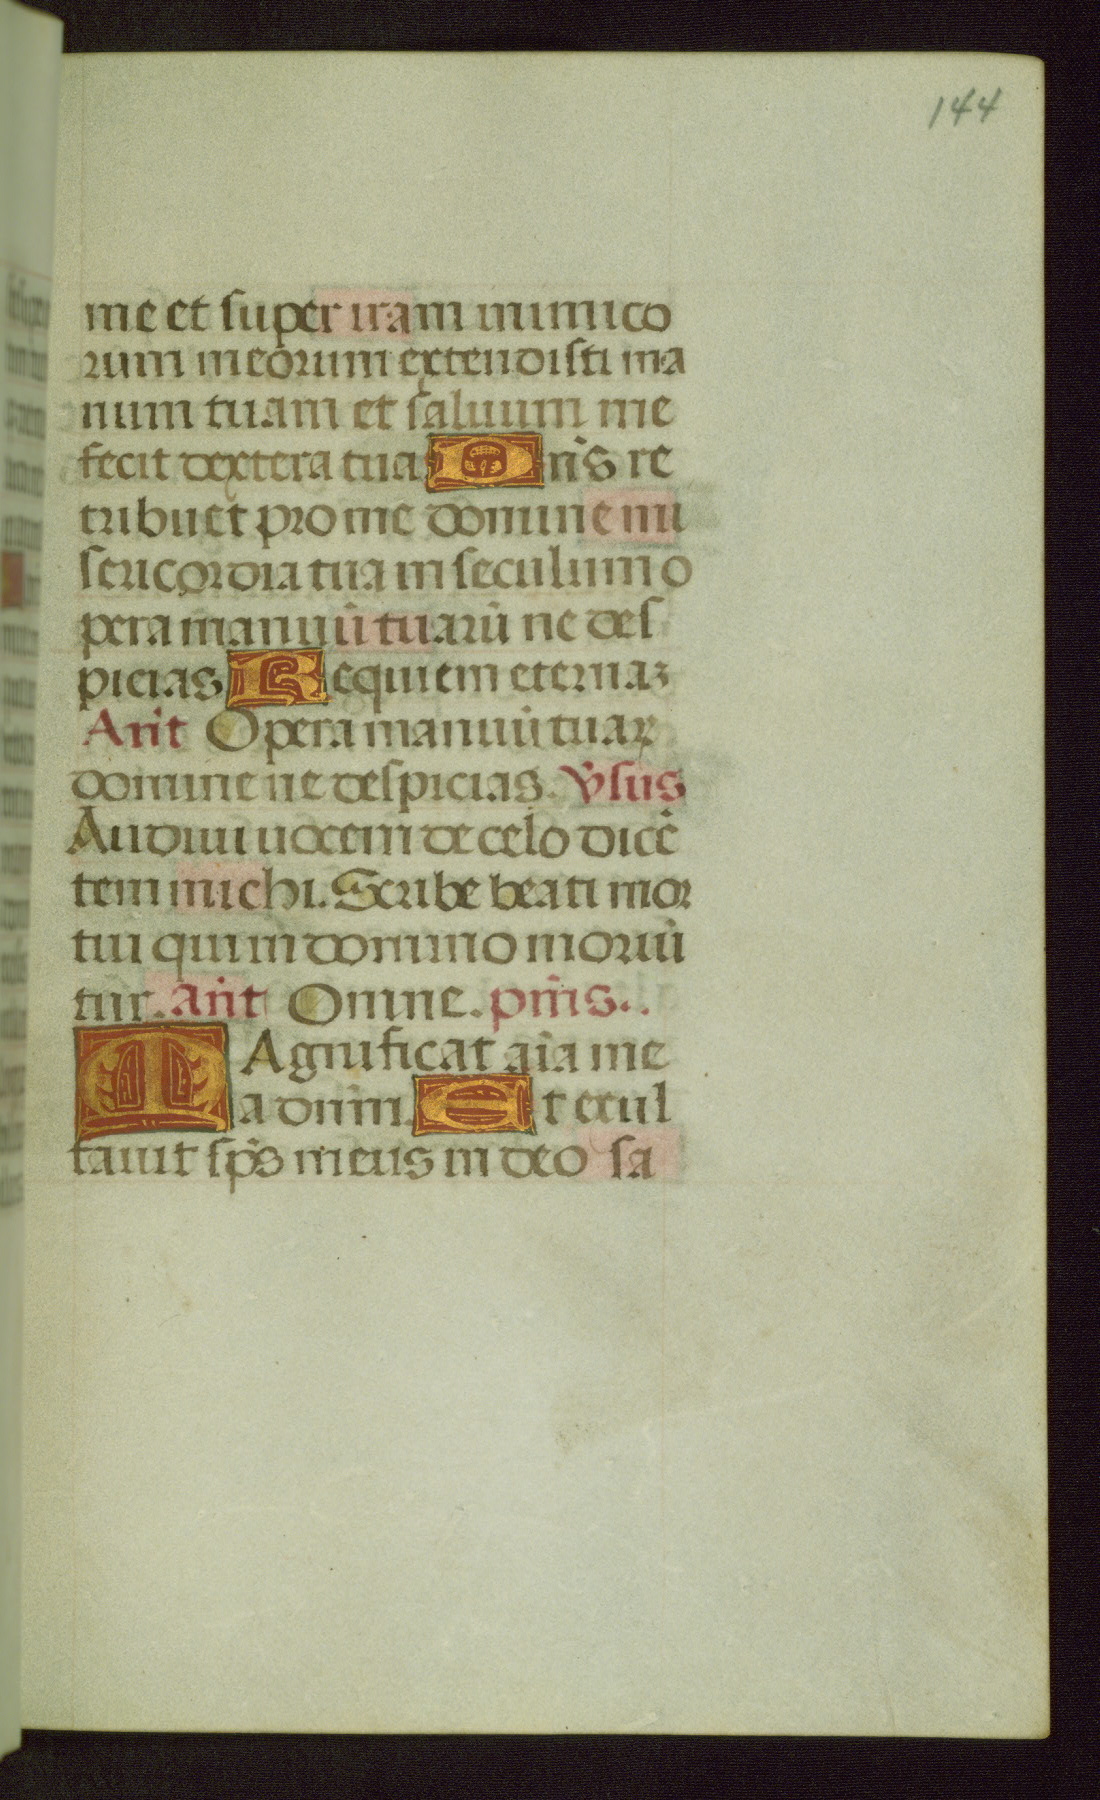 144
me et super iram inimico
rum meorum extendisti ma
num tuam et saluum me
fecit dextera tua Dn̄s re
tribuet pro me domine mi
sericordia tua in seculum o
pera manuū tuarū ne des
picias Requiem eternaʒ
Añt Opera manuū tuaꝝ
domine ne despicias. v̄sus
Audiui uocem de celo dicē
tem michi. Scribe beati mor
tui qui in domino moriū
tur. añt Omne. p̄m̄s.
MAgnificat aīa me
a dn̄m. Et exul
tauit sp̄s meus in deo sa